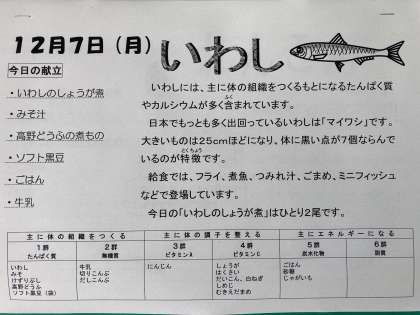 12月7日(月) いわし
今日の献立
・いわしのしょうが煮
・みそ汁
・高野どうふの煮もの
・ソフト黒豆
・ごはん
・牛乳
いわしには、主に体の組織をつくるもとになるたんぱく
質やカルシウムが多く含まれています。
日本でもっとも多く出回っているいわしは「マイワシ」です。
大きいものは25cmほどになり、体に黒い点が7個ならんで
いるのが特徴です。
給食では、フライ、煮魚、つみれ汁、ごまめ、ミニフィッシュ
などで登場しています。
今日の「いわしのしょうが煮」はひとり2尾です。
主に体の組織をつくる 主に体の調子を整える 主にエネルギーになる
1群 2群 3群 4群 5群 6群
たんぱく質 無機質 ビタミンA ビタミンC 炭水化物 脂質
いわし 牛乳 にんじん しょうが ごはん
みそ 切りこんぶ はくさい 砂糖
けずりぶし だしこんぶ だいこん、白ねぎ じゃがいも
高野どうふ しめじ
ソフト黒豆(袋) むきえだまめ